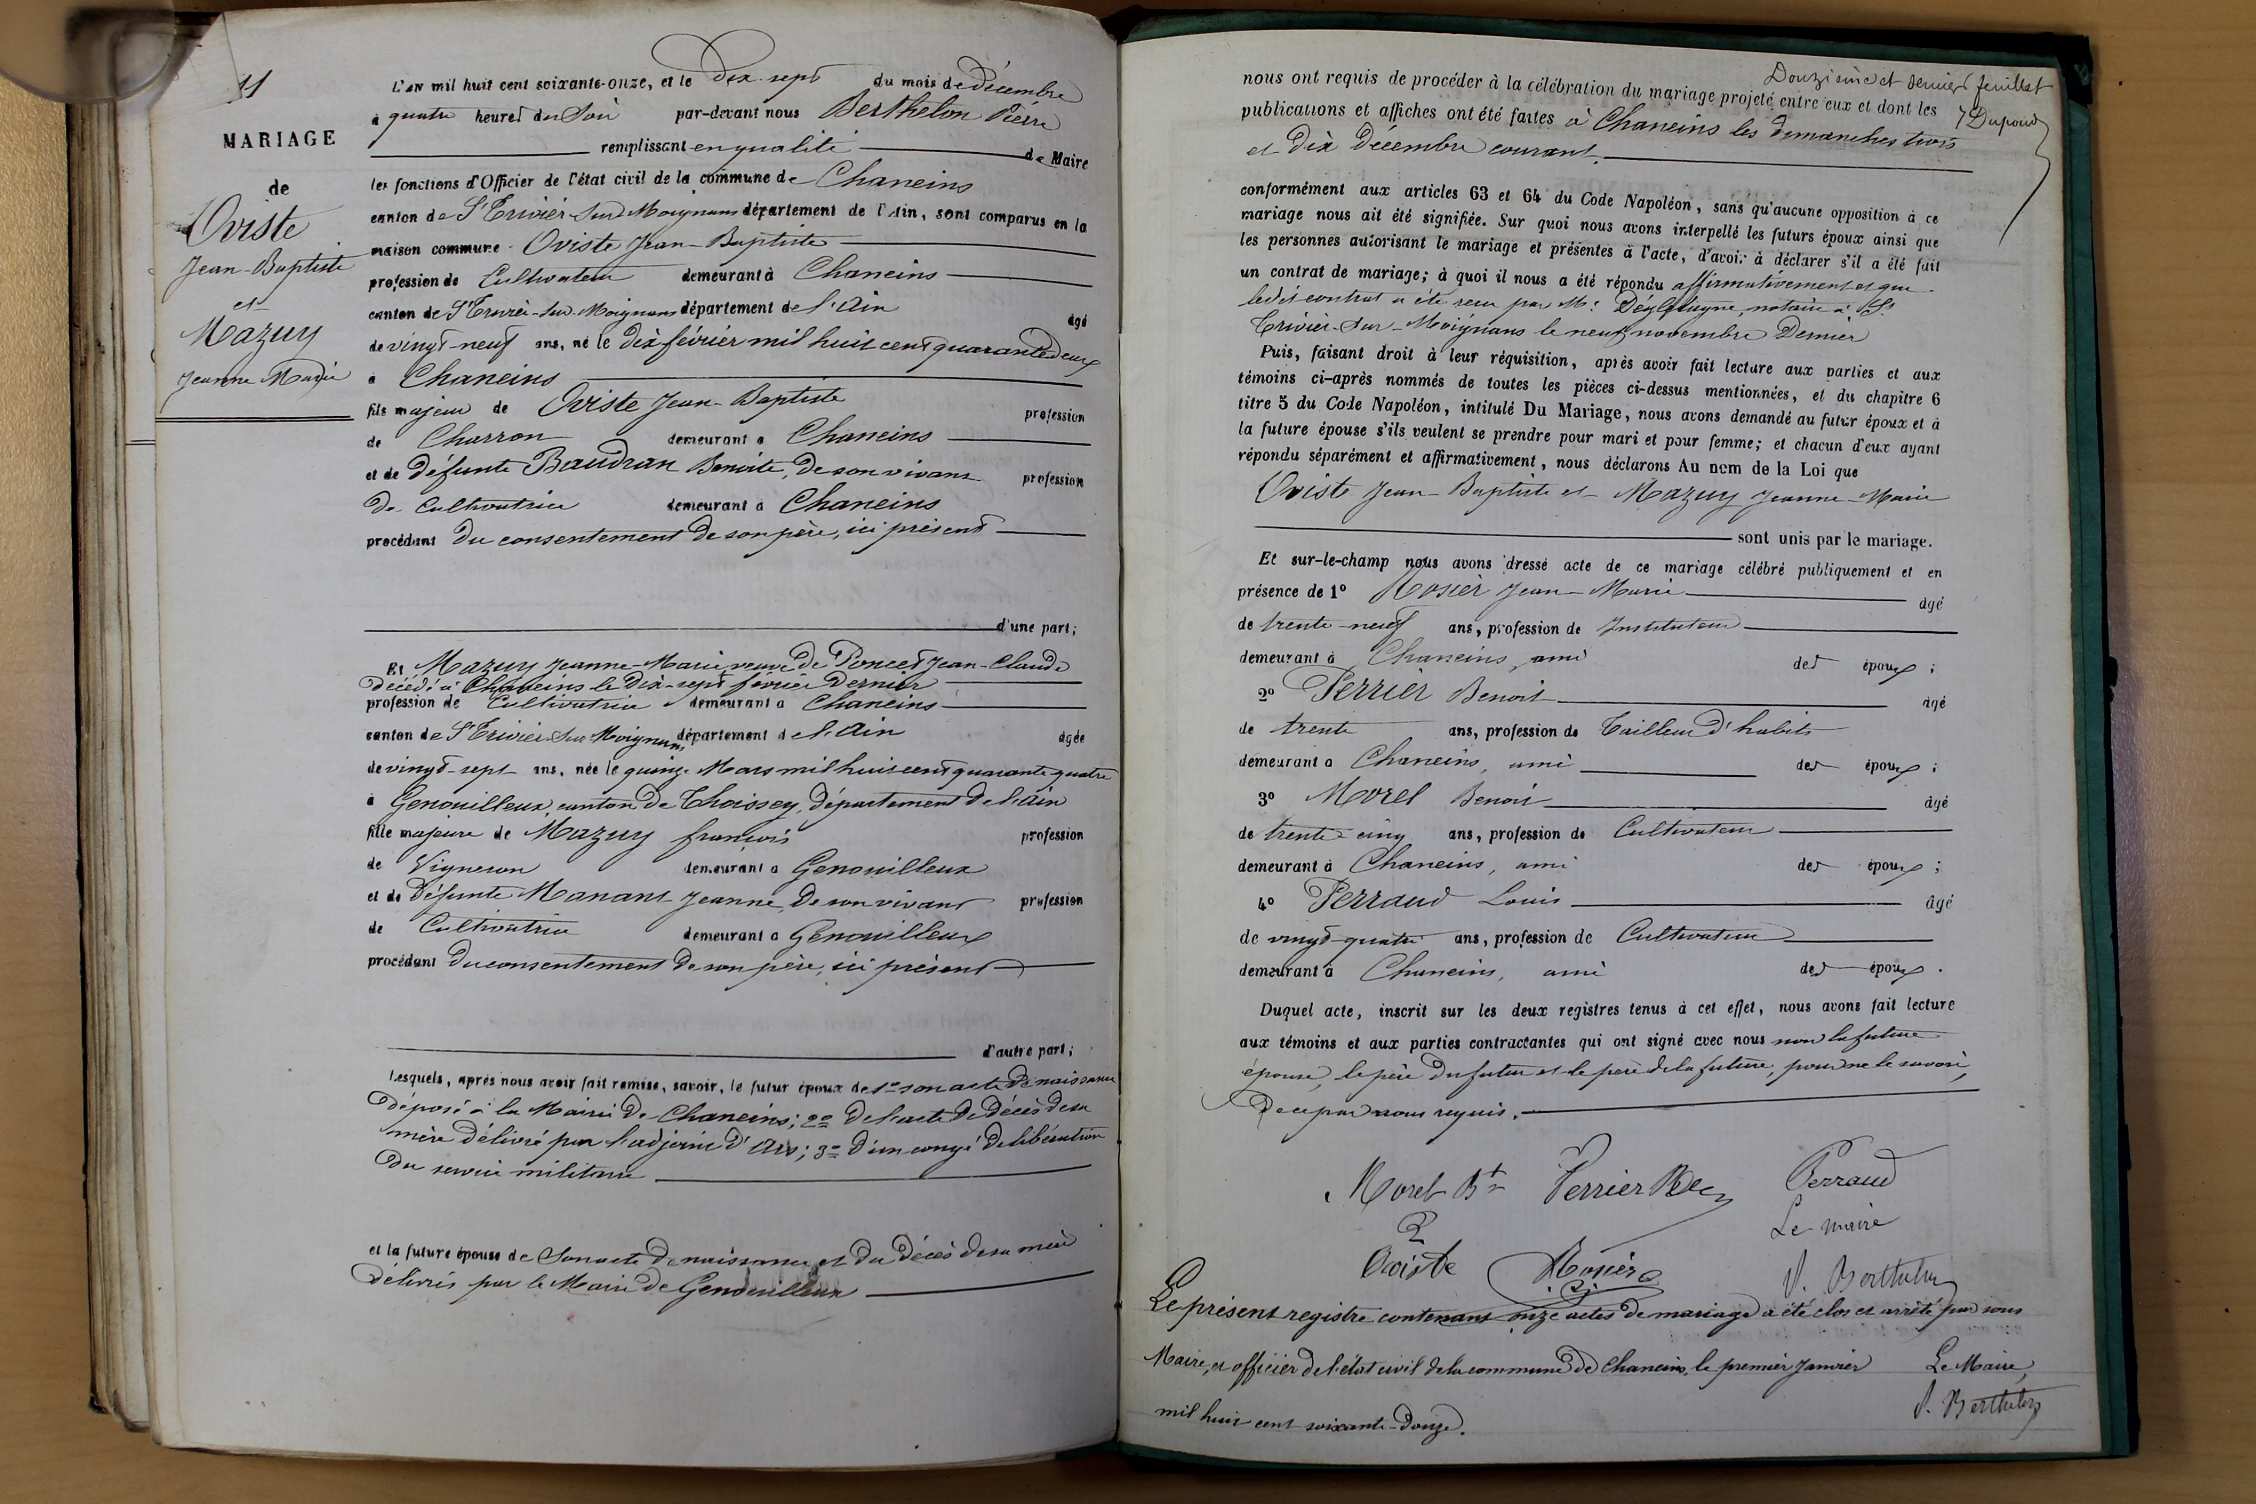 11
MARIAGE
de
Oviste
Jean-Baptiste
et
Mazuy
Jeanne Marie
L'AN mil huit cent soixante-onze, et le dix-sept du mois de Décembre
à quatre heures du Soir par-devant nous Berthelon Pierre
remplissant en qualité de Maire
les fonctions d'Officier de l'état civil de la commune de Chaneins
canton de St Trivier-sur-Moignans département de l'Ain, sont comparus en la
maison commune Oviste Jean-Baptiste
profession de Cultivateur demeurant à Chaneins
canton de St Trivier-sur-Moignans département de l'Ain âgé
de vingt-neuf ans, né le dix février mil huit cent quarante deux
à Chaneins
fils majeur de Oviste Jean-Baptiste profession
de Charron demeurant à Chaneins
et de défunte Baudran Benoite, de son vivant profession
de Cultivatrice demeurant à Chaneins
procédant du consentement de son père, ici présent
d'une part;
Et Mazuy Jeanne-Marie veuve de Poncet Jean-Claude
décédé à Chaneins le dix-sept février dernier
profession de Cultivatrice demeurant à Chaneins
canton de St Trivier-sur-Moignans département de l'Ain âgée
de vingt-sept ans, née le quinze Mars mil huit cent quarante quatre
à Genouilleux, canton de Thoissey, département de l'Ain
fille majeure de Mazuy françois profession
de Vigneron demeurant à Genouilleux
et de défunte Manant Jeanne, de son vivant profession
de Cultivatrice demeurant à Genouilleux
procédant du consentement de son père, ici présent
d'autre part;
Lesquels, après nous avoir fait remise, savoir, le futur époux de 1º son acte de naissance
déposé à la Mairie de Chaneins; 2º de l'acte de décès de sa
mère délivré par l'adjoint d'Ars; 3º d'un congé de libération
du service militaire
et la future épouse de son acte de naissance et du décès de sa mère
délivrés par le Maire de Genouilleux
Douzième et dernier feuillet
Dupond
nous ont requis de procéder à la célébration du mariage projeté entre eux et dont les
publications et affiches ont été faites à Chaneins les dimanches trois
et dix Décembre courant.
conformément aux articles 63 et 64 du Code Napoléon, sans qu'aucune opposition à ce
mariage nous ait été signifiée. Sur quoi nous avons interpellé les futurs époux ainsi que
les personnes autorisant le mariage et présentes à l'acte, d'avoir à déclarer s'il a été fait
un contrat de mariage; à quoi il nous a été répondu affirmativement et que
ledit contrat a été reçu par Me notaire à St
Trivier-sur-Moignans le neuf novembre dernier
Puis, faisant droit à leur réquisition, après avoir fait lecture aux parties et aux
témoins ci-après nommés de toutes les pièces ci-dessus mentionnées, et du chapitre 6
titre 5 du Code Napoléon, intitulé Du Mariage, nous avons demandé au futur époux et à
la future épouse s'ils veulent se prendre pour mari et pour femme; et chacun d'eux ayant
répondu séparément et affirmativement, nous déclarons Au nom de la Loi que
Oviste Jean-Baptiste et Mazuy Jeanne-Marie
sont unis par le mariage.
Et sur-le-champ nous avons dressé acte de ce mariage célébré publiquement et en
présence de 1º Rosier Jean-Marie âgé
de trente-neuf ans, profession de Instituteur
demeurant à Chaneins, ami des époux;
2º Perrier Benoit âgé
de trente ans, profession de Tailleur d'habits
demeurant à Chaneins, ami des époux;
3º Morel Benoit âgé
de trente cinq ans, profession de Cultivateur
demeurant à Chaneins, ami des époux;
4º Perraud Louis âgé
de vingt-quatre ans, profession de Cultivateur
demeurant à Chaneins, ami des époux.
Duquel acte, inscrit sur les deux registres tenus à cet effet, nous avons fait lecture
aux témoins et aux parties contractantes qui ont signé avec nous non la future
épouse, le père du futur et le père de la future, pour ne le savoir,
de ce par nous requis.
Morel Bt Perrier Perraud
Le maire
Oviste Rosier P. Berthelon
Le présent registre contenant onze actes de mariage a été clos et arrêté par nous
Maire, et officier de l'état civil de la commune de Chaneins, le premier Janvier Le Maire,
mil huit cent soixante-douze. P. Berthelon